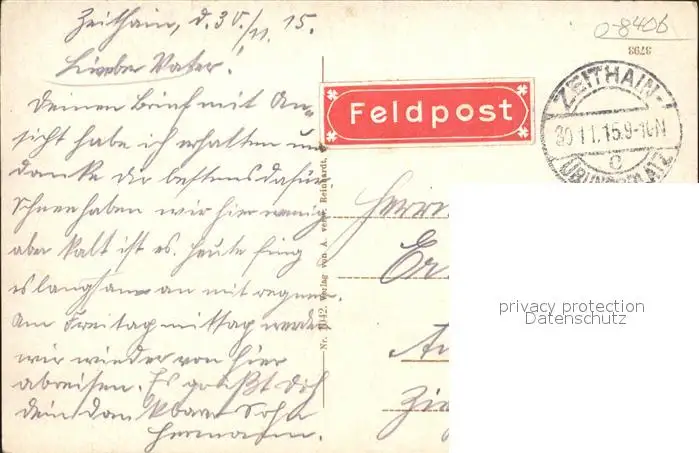 Zeithain, d. 30./11. 15.
Lieber Vater!
Deinen Brief mit An-
sicht habe ich erhalten und
danke Dir bestens dafür
Schnee haben wir hier wenig
aber kalt ist es. Heute fing
es langsam an mit regnen.
Am Freitag mittag werden
wir wieder von hier
abreisen. Es grüßt Dich
Dein dankbarer Sohn
Hermann.
0-8406
3798
Feldpost
ZEITHAIN
30 11.15.9-10N
c
ÜBUNGSPLATZ
Nr. 1942. Verlag von A. verw. Reinhardt,
Herrn
Er
privacy protection
Datenschutz